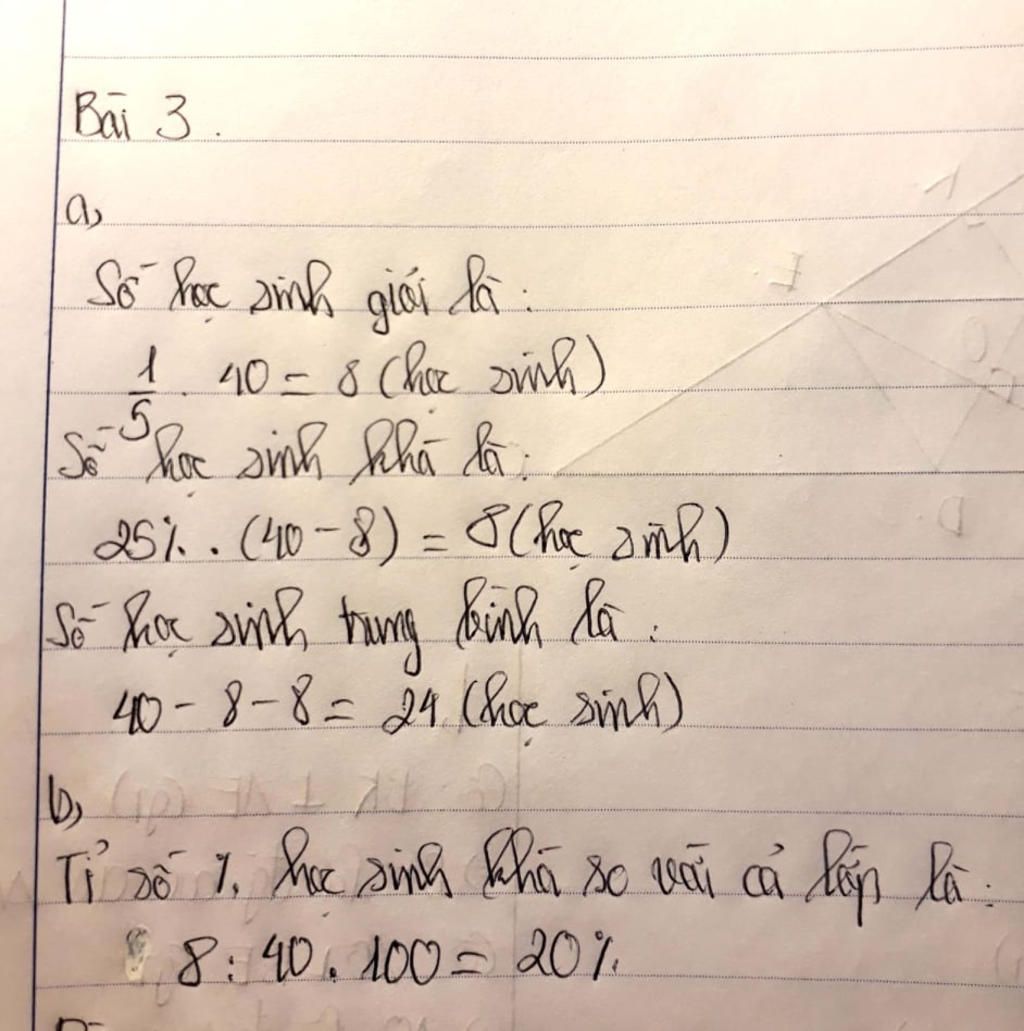 Bài 3.
a,
Số học sinh giỏi là:
1/5 . 40 = 8 (học sinh)
Số học sinh khá là:
25% . (40 - 8) = 8 (học sinh)
Số học sinh trung bình là:
40 - 8 - 8 = 24 (học sinh)
b,
Tỉ số % học sinh khá so với cả lớp là:
8 : 40 . 100 = 20%